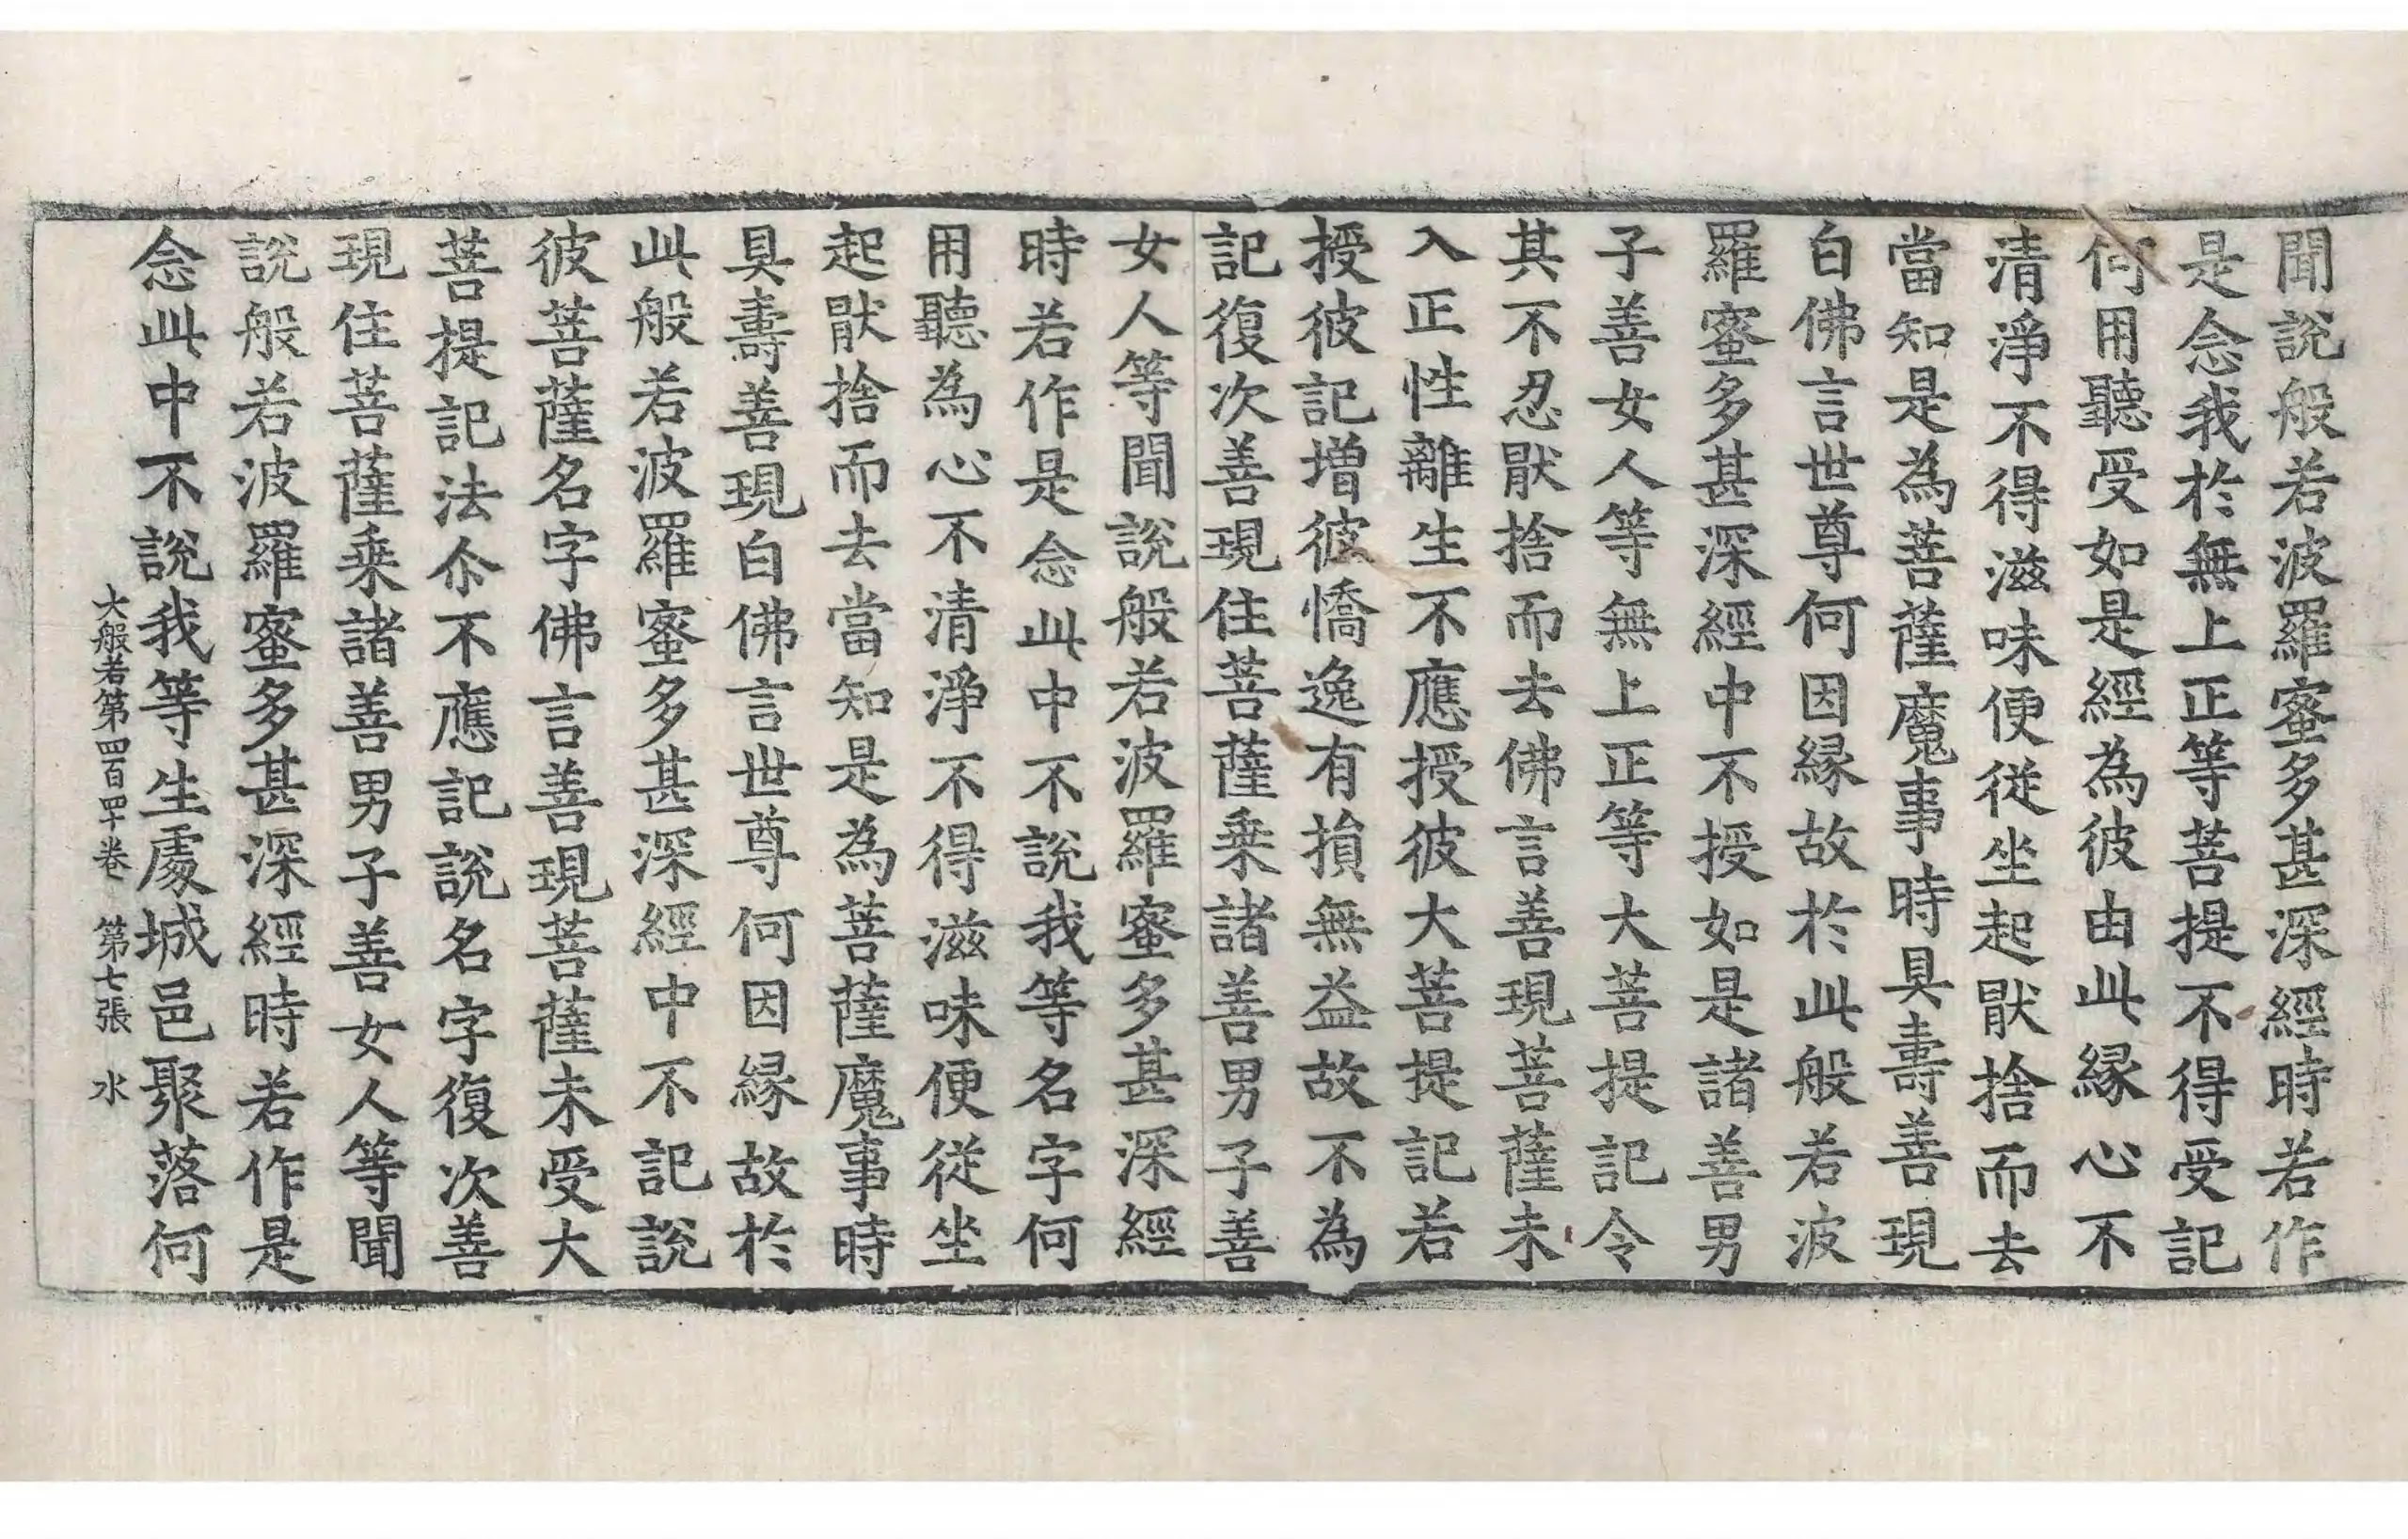 聞說般若波羅蜜多甚深經時若作
是念我於無上正等菩提不得受記
何用聽受如是經為彼由此縁心不
清淨不得滋味便從坐起猒捨而去
當知是為菩薩魔事時具壽善現
白佛言世尊何因縁故於此般若波
羅蜜多甚深經中不授如是諸善男
子善女人等無上正等大菩提記令
其不忍猒捨而去佛言善現菩薩未
入正性離生不應授彼大菩提記若
授彼記増彼憍逸有損無益故不為
記復次善現住菩薩乗諸善男子善
女人等聞說般若波羅蜜多甚深經
時若作是念此中不說我等名字何
用聽為心不清淨不得滋味便從坐
起猒捨而去當知是為菩薩魔事時
具壽善現白佛言世尊何因縁故於
此般若波羅蜜多甚深經中不記說
彼菩薩名字佛言善現菩薩未受大
菩提記法尒不應記說名字復次善
現住菩薩乗諸善男子善女人等聞
說般若波羅蜜多甚深經時若作是
念此中不說我等生處城邑聚落何
大般若第四百四十卷 第七張 水